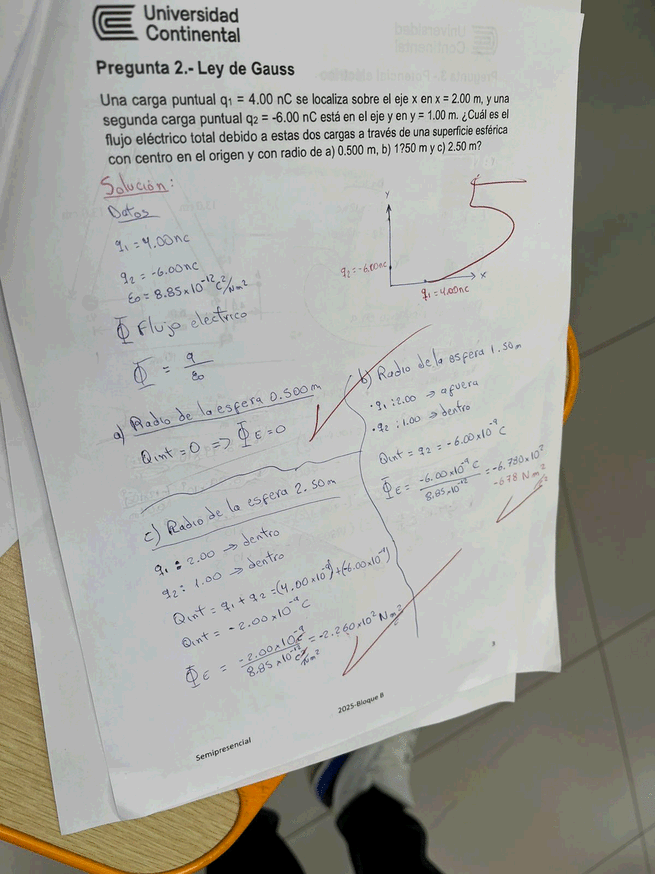 Universidad
Continental
Pregunta 2.- Ley de Gauss
Una carga puntual q₁ = 4.00 nC se localiza sobre el eje x en x = 2.00 m, y una
segunda carga puntual q₂ = -6.00 nC está en el eje y en y = 1.00 m. ¿Cuál es el
flujo eléctrico total debido a estas dos cargas a través de una superficie esférica
con centro en el origen y con radio de a) 0.500 m, b) 1?50 m y c) 2.50 m?
Solución:
Datos
q₁ = 4.00nc
q₂ = -6.00nc
εo = 8.85x10⁻¹² c²/Nm²
Φ Flujo eléctrico
Φ = q/εo
Y
q₂ = -6.00nc
X
q₁ = 4.00nc
a) Radio de la esfera 0.500m
Qint = 0 => Φε = 0
b) Radio de la esfera 1.50m
• q₁ : 2.00 → afuera
• q₂ : 1.00 → dentro
Qint = q₂ = -6.00x10⁻⁹ C
Φε = -6.00x10⁻⁹ C / 8.85x10⁻¹² = -6.780x10²
-678 N m²
c) Radio de la esfera 2.50m
q₁ : 2.00 → dentro
q₂ : 1.00 → dentro
Qint = q₁ + q₂ = (4.00x10⁻⁹) + (-6.00x10⁻⁹)
Qint = -2.00x10⁻⁹ C
Φε = -2.00x10⁻⁹ C / 8.85x10⁻¹² C²/Nm² = -2.260x10² N m²
2025-Bloque B
Semipresencial